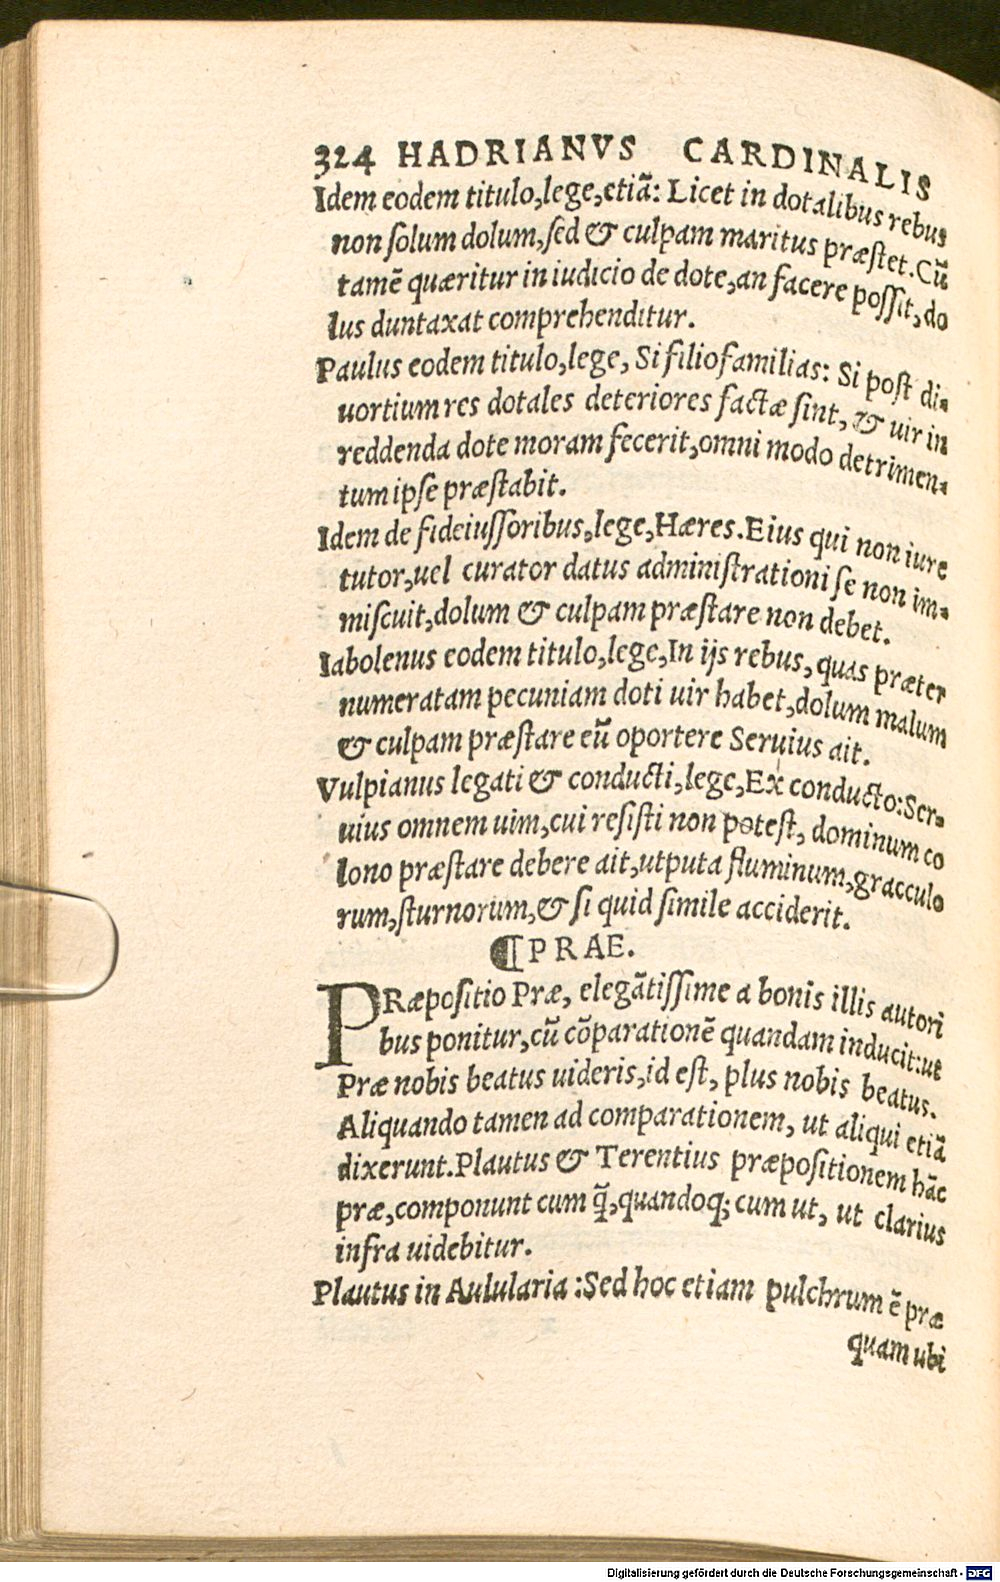 324 HADRIANVS CARDINALIS
Idem eodem titulo, lege, etiã: Licet in dotalibus rebus
non ſolum dolum, ſed & culpam maritus præſtet. Cũ
tamẽ quæritur in iudicio de dote, an facere poſſit, do
lus duntaxat comprehenditur.
Paulus eodem titulo, lege, Si filiofamilias: Si poſt di-
uortium res dotales deteriores factæ ſint, & uir in
reddenda dote moram fecerit, omni modo detrimen-
tum ipſe præſtabit.
Idem de fideiuſſoribus, lege, Hæres. Eius qui non iure
tutor, uel curator datus adminiſtrationi ſe non im-
miſcuit, dolum & culpam præſtare non debet.
Iabolenus eodem titulo, lege, In ijs rebus, quas præter
numeratam pecuniam doti uir habet, dolum malum
& culpam præſtare eũ oportere Seruius ait.
Vulpianus legati & conducti, lege, Ex conducto: Ser-
uius omnem uim, cui reſiſti non poteſt, dominum co
lono præſtare debere ait, utputa fluminum, gracculo
rum, ſturnorum, & ſi quid ſimile acciderit.
¶ PRAE.
PRæpoſitio Præ, elegãtiſſime a bonis illis autori
bus ponitur, cũ cõparationẽ quandam inducit: ut
Præ nobis beatus uideris, id eſt, plus nobis beatus.
Aliquando tamen ad comparationem, ut aliqui etiã
dixerunt. Plautus & Terentius præpoſitionem hãc
præ, componunt cum q̃, quandoq; cum ut, ut clarius
infra uidebitur.
Plautus in Aulularia: Sed hoc etiam pulchrum ẽ præ
quam ubi
Digitalisierung gefördert durch die Deutsche Forschungsgemeinschaft - DFG